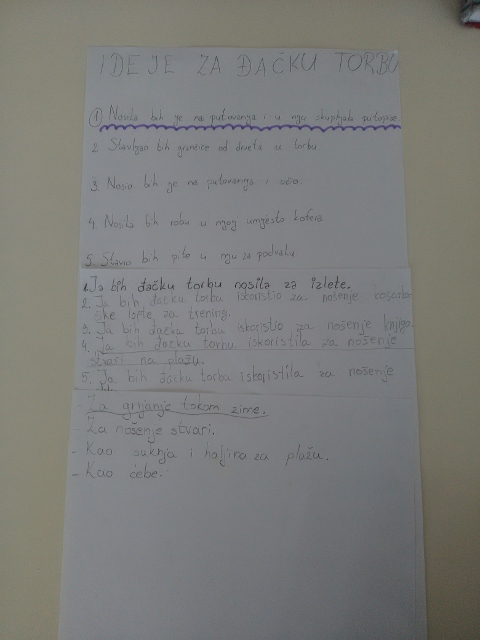 IDEJE ZA ĐAČKU TORBU
1 Nosila bih je na putovanja i u nju skupljala putopise.
2. Stavljao bih grančice od drveta u torbu.
3. Nosio bih je na putovanja i učio.
4. Nosila bih robu u njoj umjesto kofera
5. Stavio bih pito u nju za podvalu
1. Ja bih đačku torbu nosila za izlete.
2. Ja bih đačku torbu iskoristio za nošenje košarka-
ške lopte za trening.
3. Ja bih đačku torbu iskoristio za nošenje knjiga.
4. Ja bih đačku tornu iskoristila za nošenje
stvari na plažu.
5. Ja bih đačku torba iskoristila za nošenje
- Za grijanje tokom zime.
- Za nošenje stvari.
- Kao suknja i haljina za plažu.
- Kao ćebe.